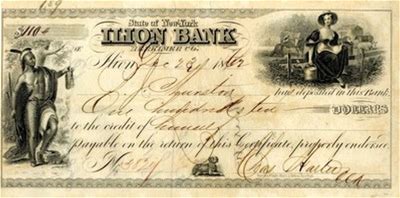 State of New-York
$110 4
ILION BANK
HERKIMER CO.
Ilion Dec 23 1862
has deposited in this Bank
One Hundred & ten DOLLARS
to the credit of himself
payable on the return of this Certificate, properly endorsed
No
Chas Harter